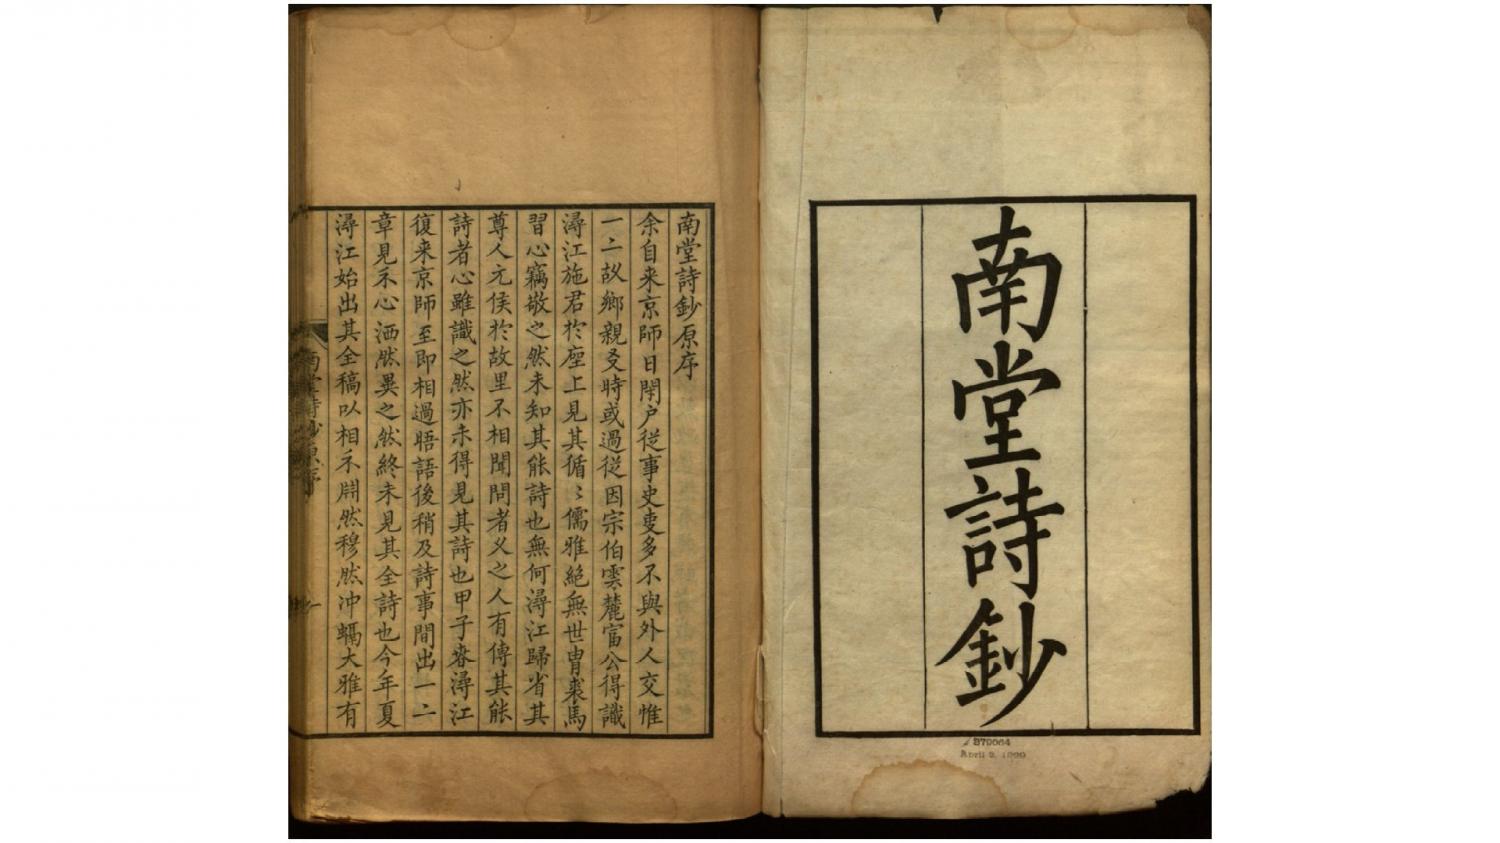 南堂詩鈔
379064
April 2, 1
南堂詩鈔原序
余自来京師日閉户従事史叓多不與外人交惟
一二故鄉親友時或過従因宗伯雲麓富公得識
潯江施君扵座上見其循〻儒雅絕無世胄裘馬
習心竊敬之然未知其能詩也無何潯江歸省其
尊人元侯扵故里不相聞問者乆之人有傳其能
詩者心雖識之然亦未得見其詩也甲子春潯江
復来京師至即相過晤語後稍及詩事間出一二
章見示心洒然異之然終未見其全詩也今年夏
潯江始出其全稿以相示開然穆然冲瀜大雅有
南堂詩鈔原序